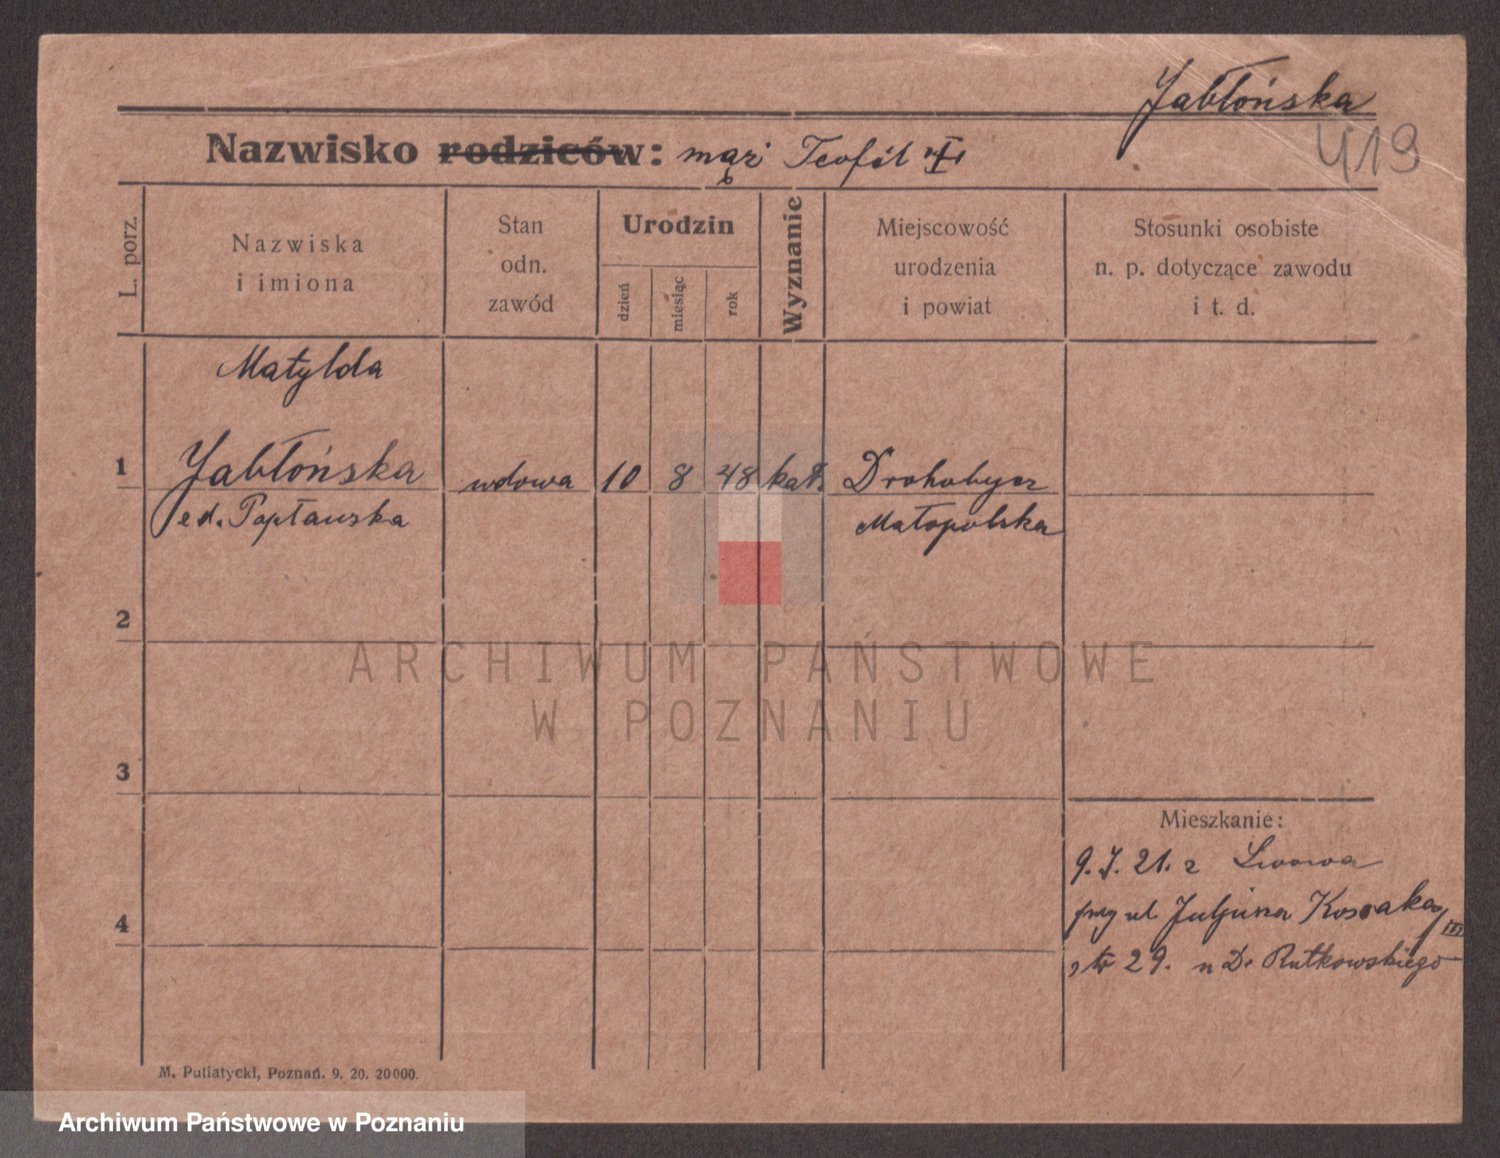 Jabłońska
419
Nazwisko rodziców: mąż Teofil
L. porz.
Nazwiska
i imiona
Stan
odn.
zawód
Urodzin
dzień
miesiąc
rok
Wyznanie
Miejscowość
urodzenia
i powiat
Stosunki osobiste
n. p. dotyczące zawodu
i t. d.
Matylda
1 Jabłońska wdowa 10 8 48 kat. Drohobycz
Popławska Małopolska
2
ARCHIWUM PAŃSTWOWE
W POZNANIU
3
Mieszkanie:
9. 7. 21. z Lwowa
4 przy ul. Juljusza Kossaka
29. u Dr Rutkowskiego
M. Putiatycki, Poznań. 9. 20. 20000.
Archiwum Państwowe w Poznaniu